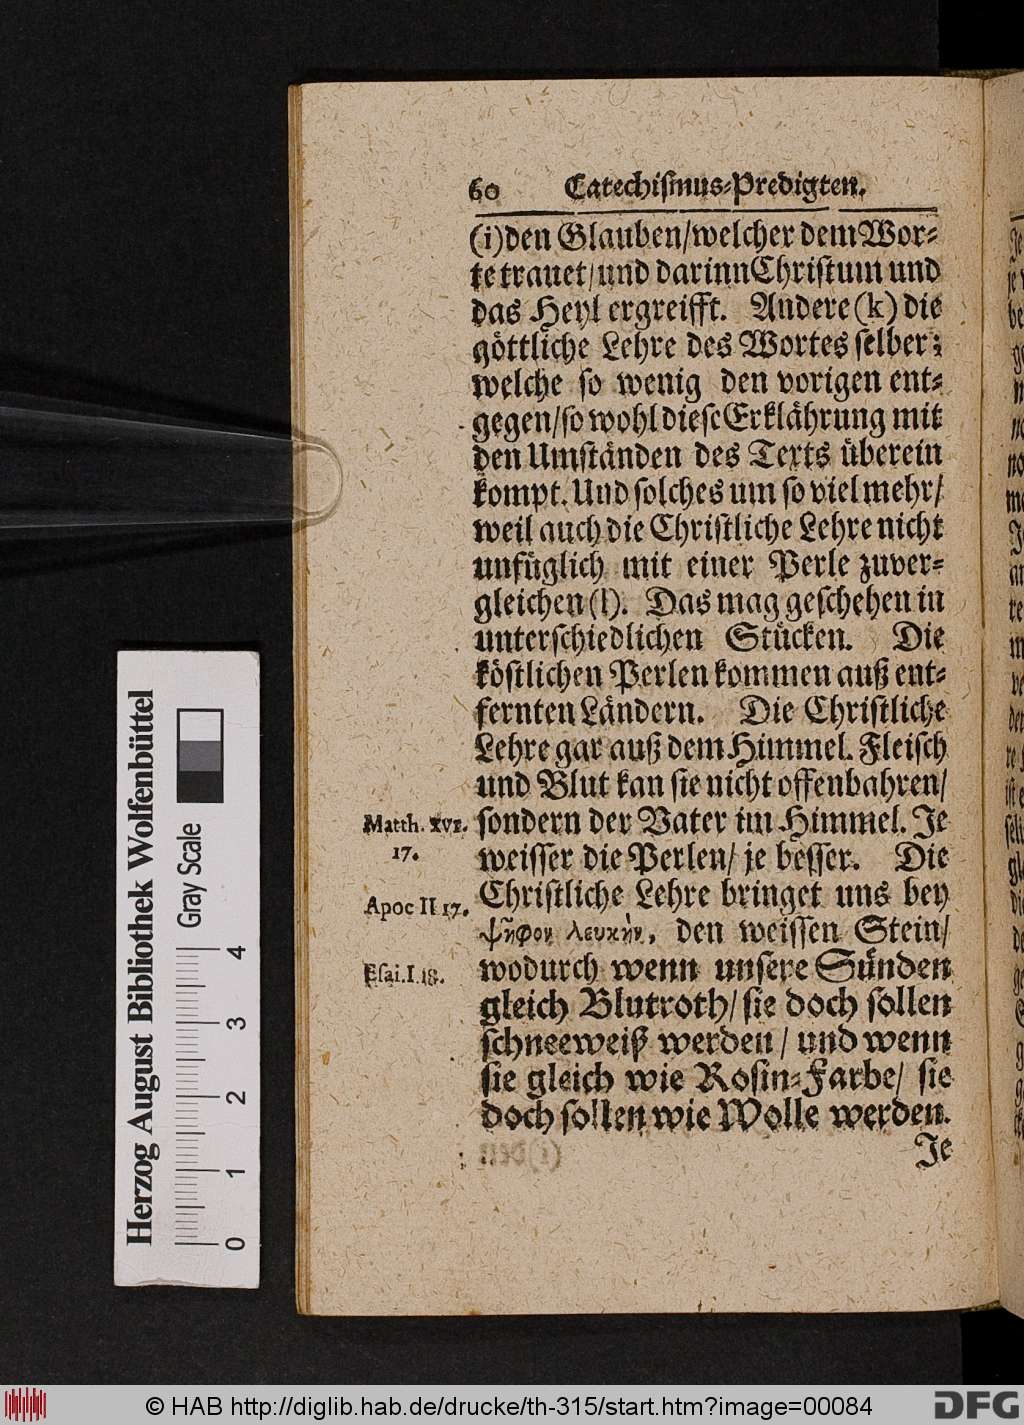 60 Catechismus-Predigten.
(i) den Glauben/ welcher dem Wor-
te trauet/ und darinn Christum und
das Heyl ergreifft. Andere (k) die
göttliche Lehre des Wortes selber;
welche so wenig den vorigen ent-
gegen/ so wohl diese Erklährung mit
den Umständen des Texts überein
kompt. Und solches um so viel mehr/
weil auch die Christliche Lehre nicht
unfüglich mit einer Perle zuver-
gleichen (l). Das mag geschehen in
unterschiedlichen Stücken. Die
köstlichen Perlen kommen auß ent-
fernten Ländern. Die Christliche
Lehre gar auß dem Himmel. Fleisch
und Blut kan sie nicht offenbahren/
Matth. XVI. sondern der Vater im Himmel. Je
17. weisser die Perlen/ je besser. Die
Apoc II 17. Christliche Lehre bringet uns bey
ψῆφον λευκὴν, den weissen Stein/
Esai. I. 18. wodurch wenn unsere Sünden
gleich Blutroth/ sie doch sollen
schneeweiß werden/ und wenn
sie gleich wie Rosin-Farbe/ sie
doch sollen wie Wolle werden.
Je
Herzog August Bibliothek Wolfenbüttel
Gray Scale
0 1 2 3 4
© HAB http://diglib.hab.de/drucke/th-315/start.htm?image=00084
DFG